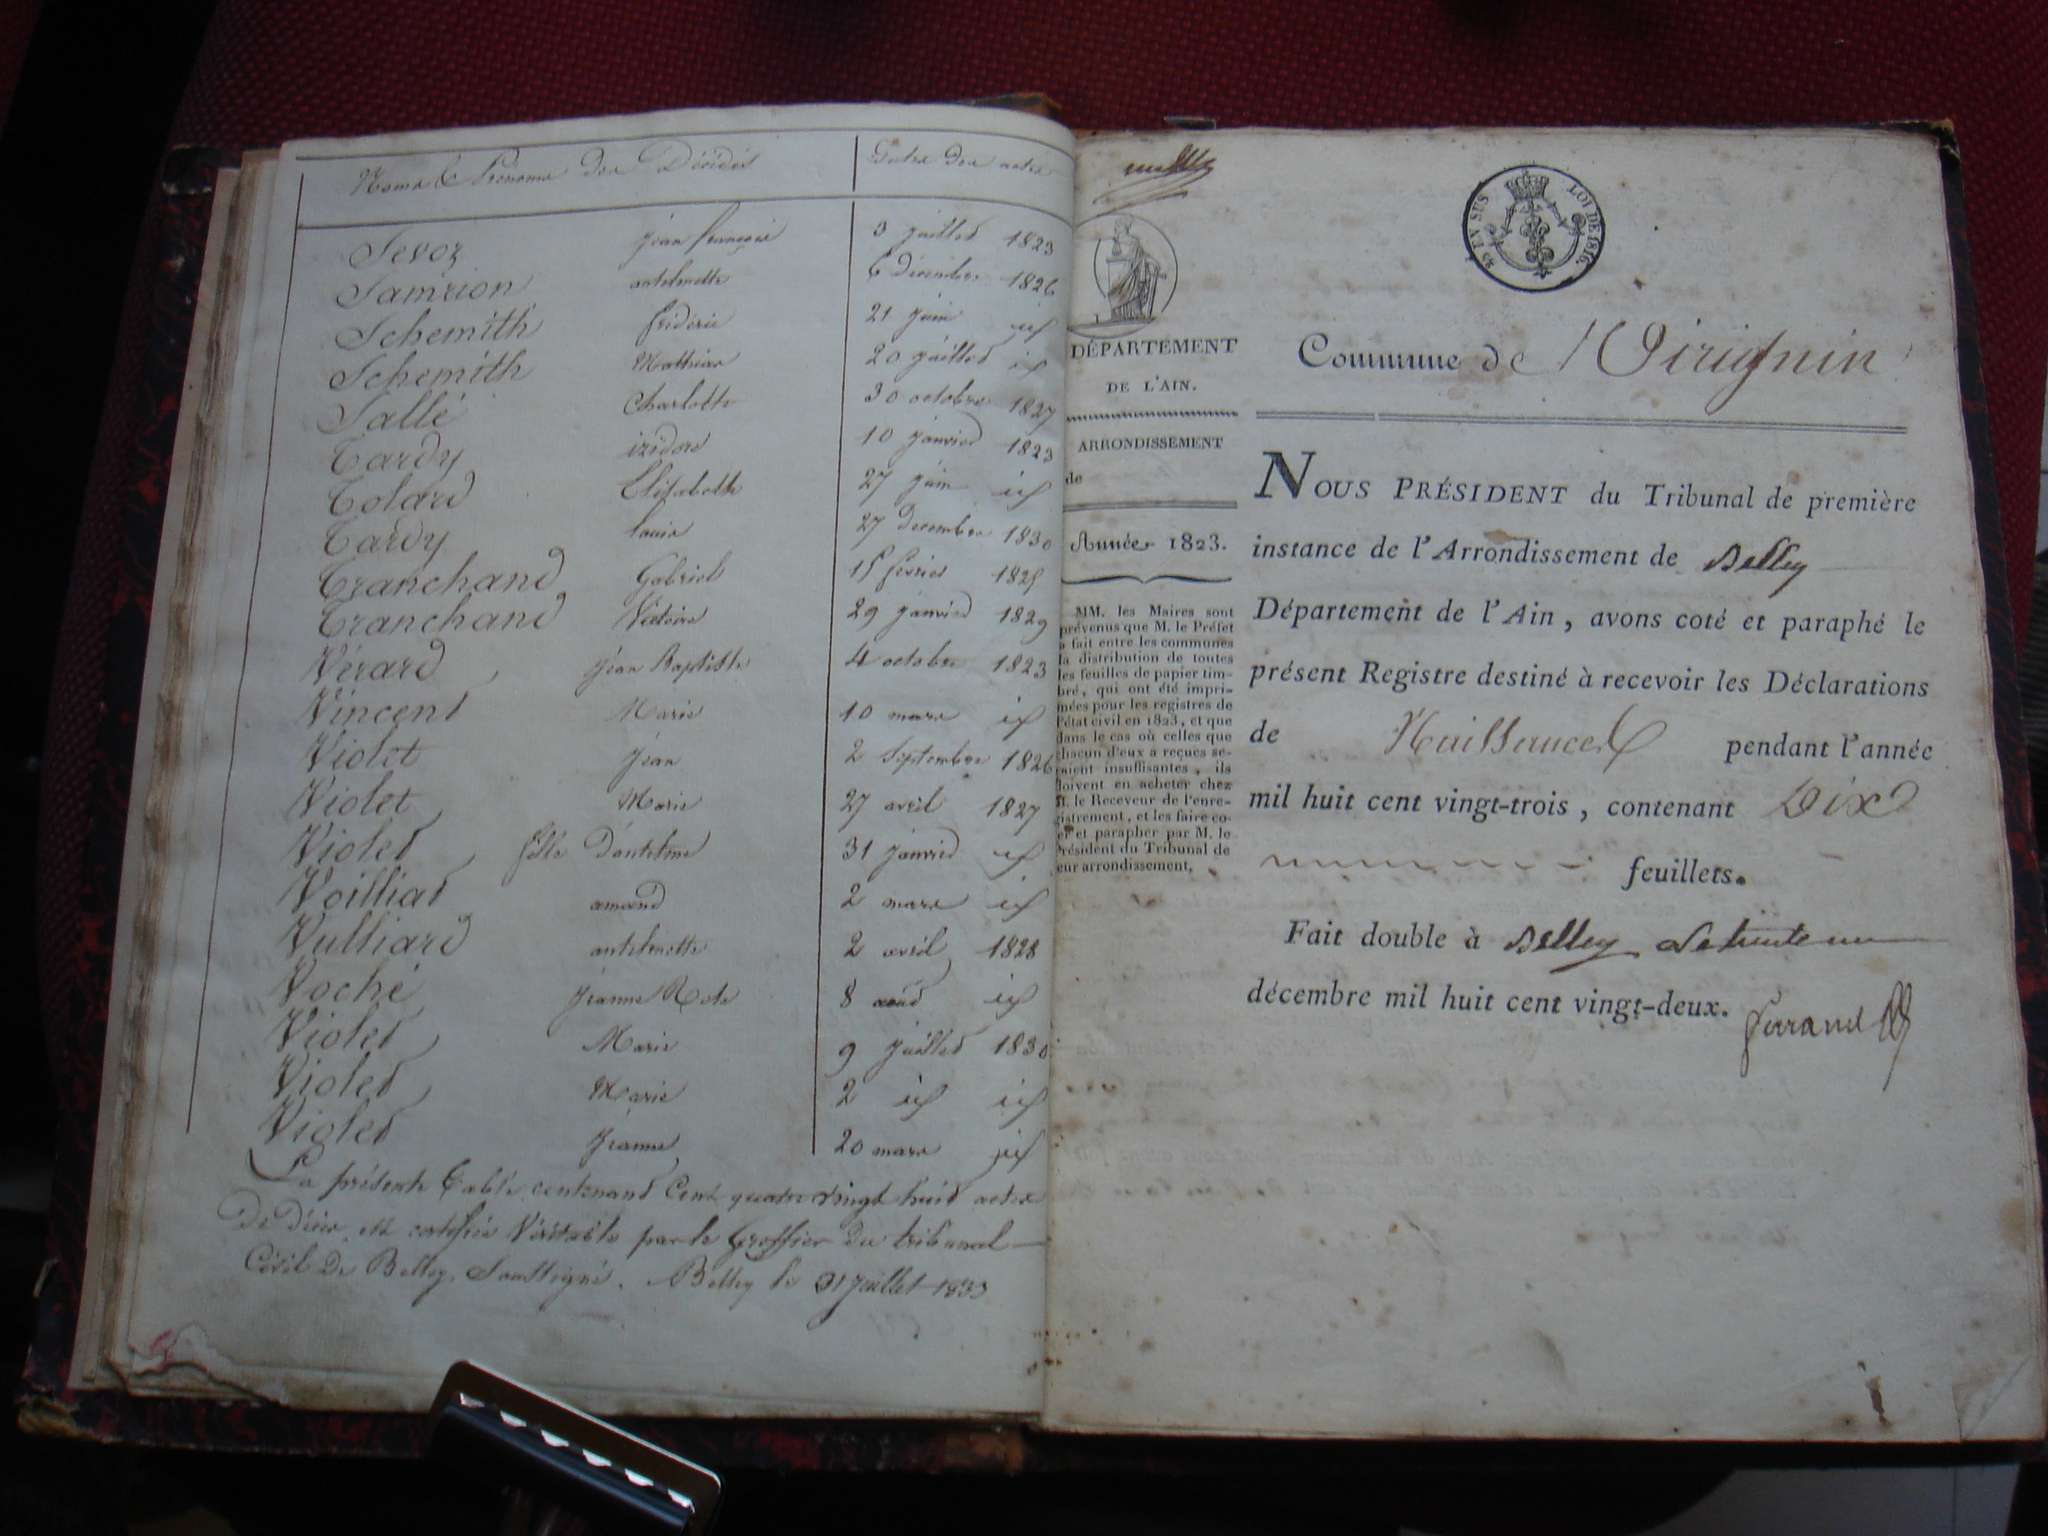 Noms & Prénoms des Décédés Dates des actes
Sevoz jean françois 3 juillet 1823
Samrion antelmette 6 décembre 1826
Schemith fridéric 21 juin id
Schemith Mathieu 20 juillet id
Sallé Charlotte 30 octobre 1827
Tardy izidore 10 janvier 1823
Tolard Elisabeth 27 juin id
Tardy louis 27 decembre 1830
Tranchand Gabriel 15 février 1825
Tranchand Victoire 29 janvier 1829
Vérard jean Baptiste 4 octobre 1823
Vincent Marie 10 mars id
Violet jean 2 Septembre 1826
Violet Marie 27 avril 1827
Violet fille d'antelme 31 janvier id
Voilliat amand 2 mars id
Vulliard antelmette 2 avril 1828
Voché jeanne Rose 8 août id
Violet Marie 9 juillet 1830
Violet Marie 2 id id
Violet jeanne 20 mars id
La présente Table contenant Cent quatre vingt huit actes
De Décès est certifiée Véritable par le Greffier du tribunal
Civil de Belley Soussigné. Belley le 31 juillet 1833
LOI DE 1816.
EN SUS
DÉPARTEMENT
DE L'AIN.
ARRONDISSEMENT
de
Année 1823.
MM. les Maires sont
prévenus que M. le Préfet
a fait entre les communes
la distribution de toutes
les feuilles de papier tim-
bré, qui ont été impri-
mées pour les registres de
l'état civil en 1823, et que
dans le cas où celles que
chacun d'eux a reçues se-
raient insuffisantes, ils
doivent en acheter chez
M. le Receveur de l'enre-
gistrement, et les faire co-
ter et parapher par M. le
Président du Tribunal de
leur arrondissement.
Commune de Virignin
NOUS PRÉSIDENT du Tribunal de première
instance de l'Arrondissement de Belley
Département de l'Ain, avons coté et paraphé le
présent Registre destiné à recevoir les Déclarations
de Naissances pendant l'année
mil huit cent vingt-trois, contenant Dix
feuillets.
Fait double à Belley Le trente un
décembre mil huit cent vingt-deux.